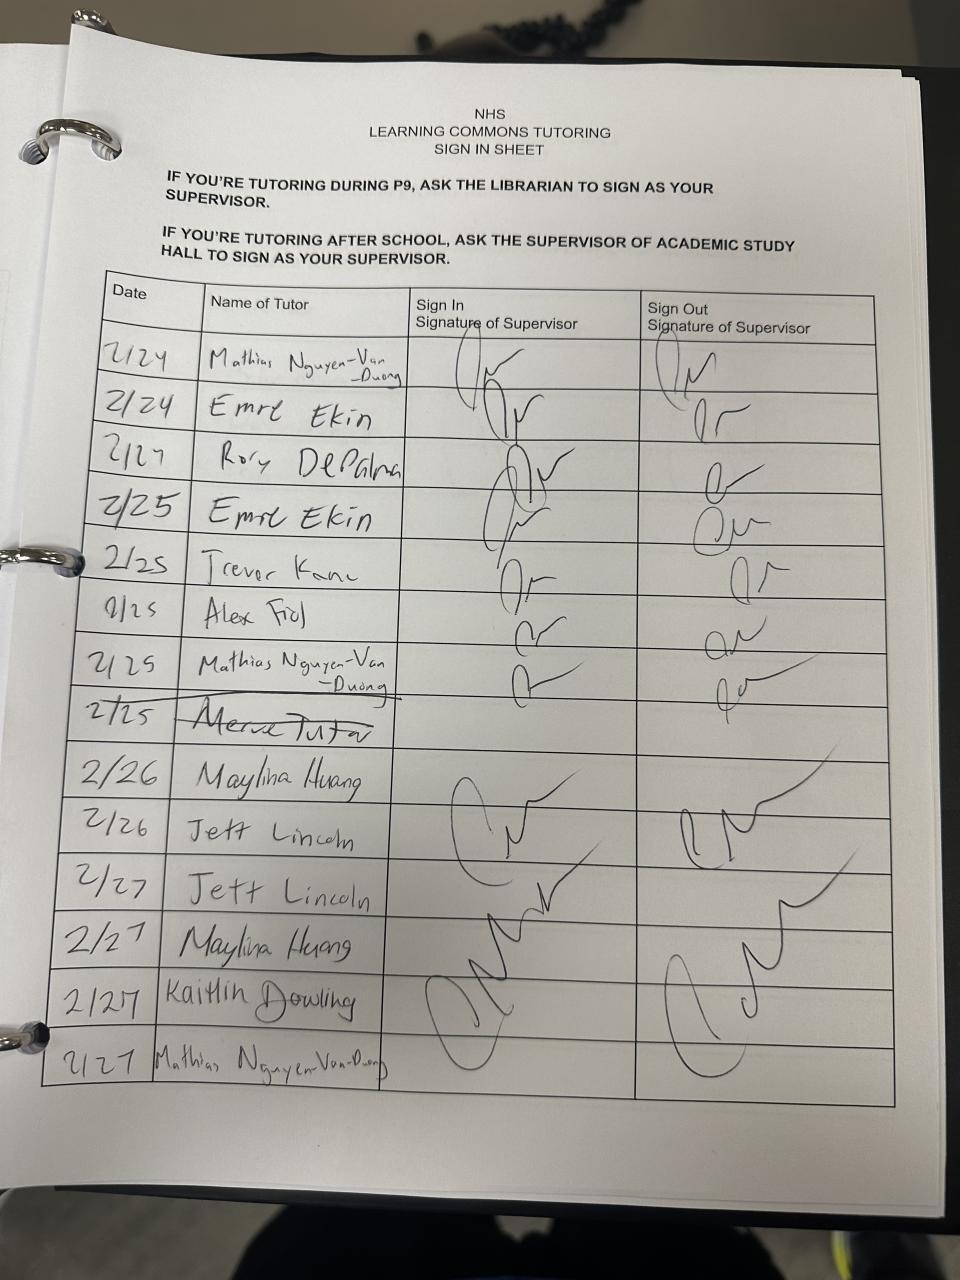 NHS
LEARNING COMMONS TUTORING
SIGN IN SHEET
IF YOU'RE TUTORING DURING P9, ASK THE LIBRARIAN TO SIGN AS YOUR
SUPERVISOR.
IF YOU'RE TUTORING AFTER SCHOOL, ASK THE SUPERVISOR OF ACADEMIC STUDY
HALL TO SIGN AS YOUR SUPERVISOR.
Date Name of Tutor Sign In Signature of Supervisor Sign Out Signature of Supervisor
2/24 Mathias Nguyen-Van
-Duong
2/24 Emre Ekin
2/27 Rory DePalma
2/25 Emre Ekin
2/25 Trever Kane
2/25 Alex Fiol
2/25 Mathias Nguyen-Van
-Duong
2/25 Tutor
2/26 Maylina Huang
2/26 Jett Lincoln
2/27 Jett Lincoln
2/27 Maylina Huang
2/27 Kaitlin Dowling
2/27 Mathias Nguyen-Van-Duong